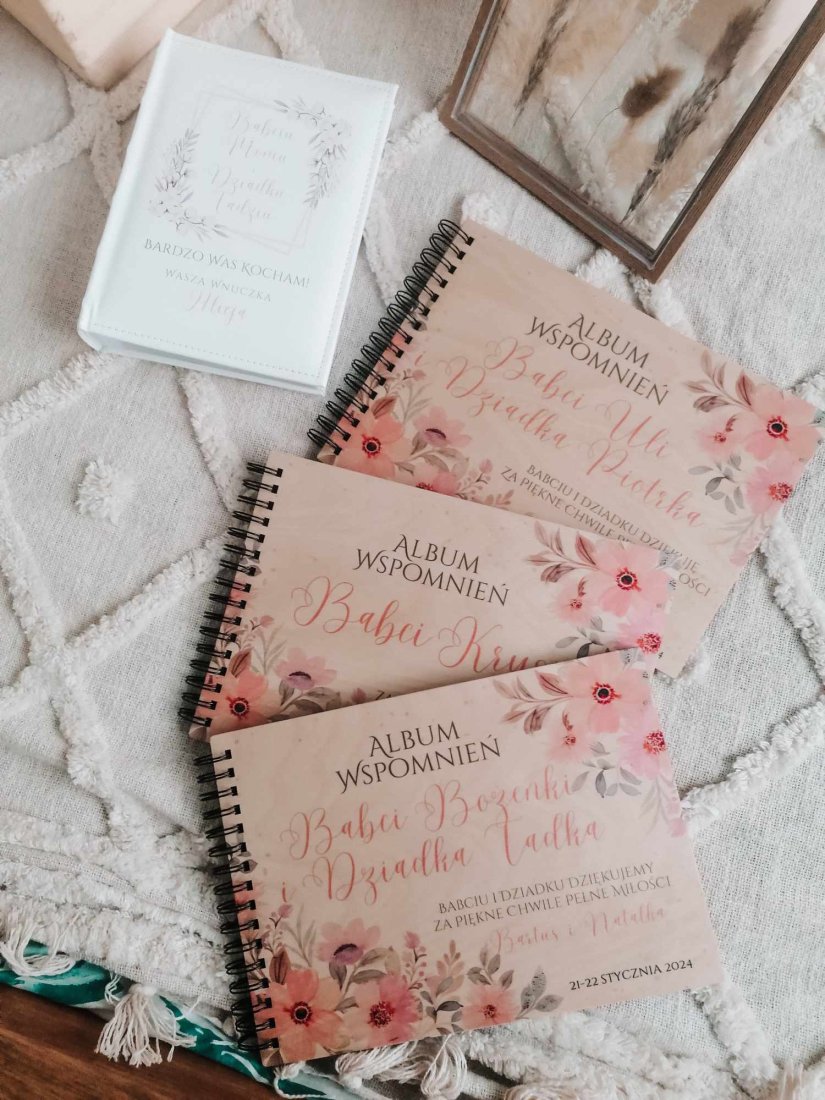 Babcia
Monia
i
Dziadka
Tadzia
BARDZO WAS KOCHAM!
WASZA WNUCZKA
Alicja
ALBUM
WSPOMNIEŃ
Babci Uli
i Dziadka Piotrka
BABCIU I DZIADKU DZIĘKUJĘ
ZA PIĘKNE CHWILE PEŁNE MIŁOŚCI
ALBUM
WSPOMNIEŃ
Babci
ALBUM
WSPOMNIEŃ
Babci Bożenki
i Dziadka Tadka
BABCIU I DZIADKU DZIĘKUJEMY
ZA PIĘKNE CHWILE PEŁNE MIŁOŚCI
Bartuś i Natalka
21-22 STYCZNIA 2024